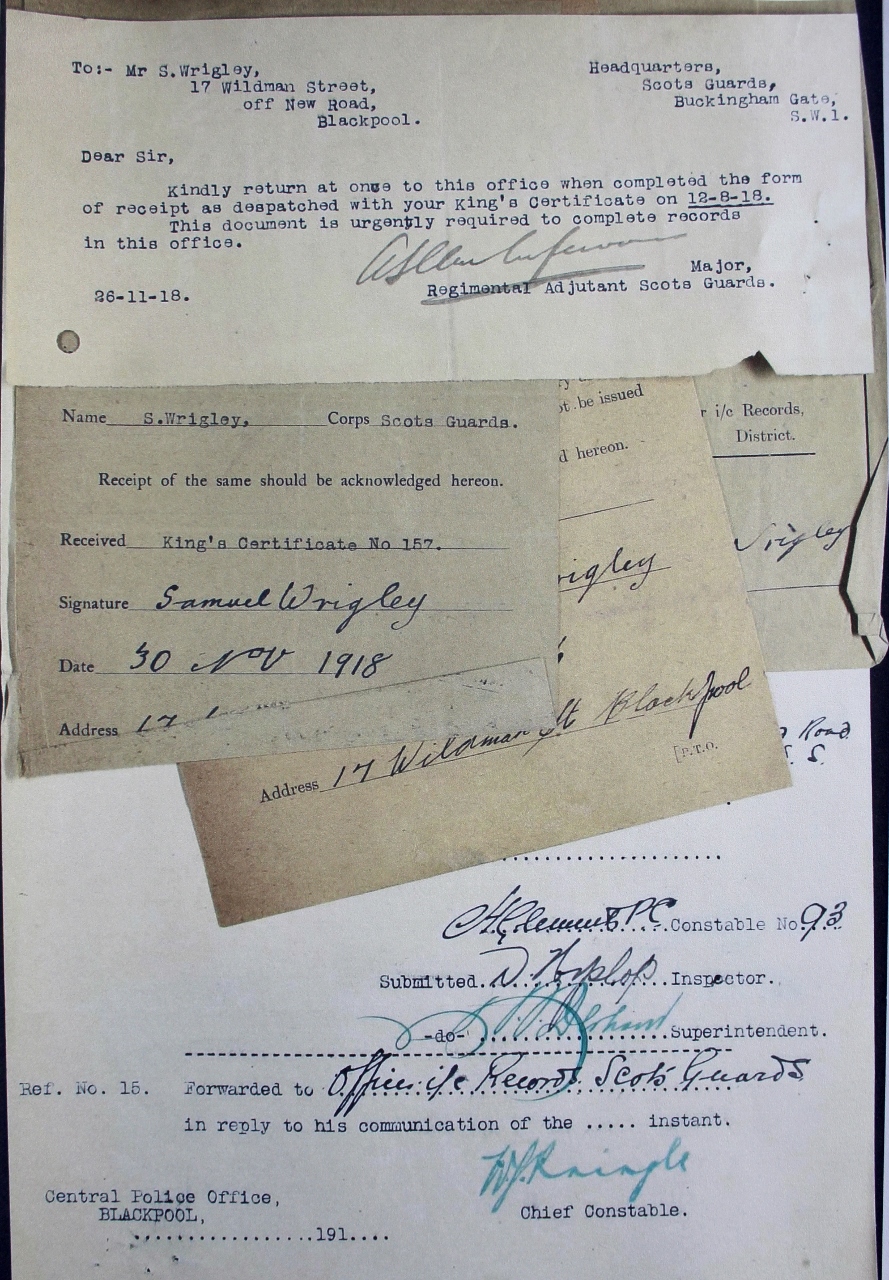 To:- Mr S.Wrigley,
17 Wildman Street,
off New Road,
Blackpool.
Headquarters,
Scots Guards,
Buckingham Gate,
S.W.1.
Dear Sir,
Kindly return at once to this office when completed the form
of receipt as despatched with your King's Certificate on 12-8-18.
This document is urgently required to complete records
in this office.
Major,
Regimental Adjutant Scots Guards.
26-11-18.
Name S.Wrigley, Corps Scots Guards.
Receipt of the same should be acknowledged hereon.
Received King's Certificate No 157.
Signature Samuel Wrigley
Date 30 Nov 1918
Address 17
be issued
hereon.
rigley
Address 17 Wildman St Blackpool
[P.T.O.
i/c Records,
District.
rigley
Road
S.
P.C. Constable No. 93
Submitted Inspector.
-do- Superintendent.
Ref. No. 15. Forwarded to Officer i/c Records Scots Guards
in reply to his communication of the ..... instant.
Chief Constable.
Central Police Office,
BLACKPOOL,
..................191....